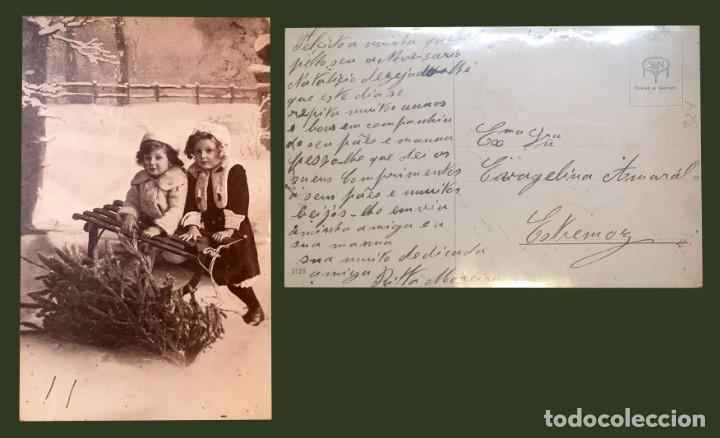 Felicito a minha
pelo seu aniversario
Natalizio
que este dia se
repita muitos annos
e bons em companhia
de seu pães e manna
que dei os
seus Comprimentos
a seus pães e muitos
beijos - lhe envia
a minha amiga e a
sua manna
sua muito dedicada
amiga Ritta Moreira
3128
S&N
Printed in Germany
324
Exma Sra
Evagelina Amarál
Estremoz
todocoleccion.net